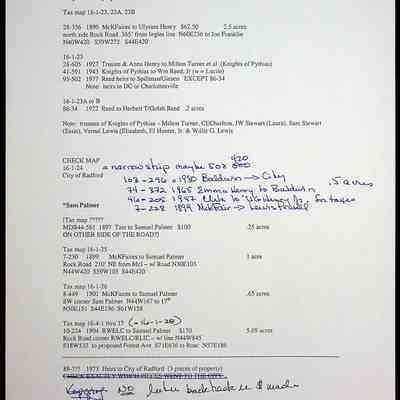 Tax map 16-1-23, 23A, 23B
28-356 1899 McKFaires to Ulysses Henry $62.50 2.5 acres
north side Rock Road 365' from legion line N60E256 to Joe Franklin
N40W420 S59W272 S44E420
16-1-23
28-605 1927 Trusten & Anna Henry to Milton Turner et al (Knights of Pythias)
41-591 1943 Knights of Pythias to Wm Reed, Jr (w = Lucile)
93-502 1977 Reed heirs to Spillman/Gleason EXCEPT 86-34
Note: heirs in DC or Charlottesville
16-1-23A or B
86-34 1972 Reed to Herbert T/Goldie Reed .2 acres
Note: trustees of Knights of Pythias - Milton Turner, CECharlton, JW Stewart (Laura), Sam Stewart
(Essie), Vernal Lewis (Elizabeth, FJ Hunter, Jr. & Willie G. Lewis
CHECK MAP
16-1-24 = narrow strip maybe 50x 420
City of Radford
103-296 = 1980 Baldwin → City
74-372 1965 Emma Henry to Baldwin .5 acres
46-205 1947
7-228 1899 McKFair → Lewis
*Sam Palmer
[Tax map ?????
MDB44-561 1897 Tate to Samuel Palmer $100 .25 acres
ON OTHER SIDE OF THE ROAD?]
Tax map 16-1-25
7-230 1899 McKFaires to Samuel Palmer 1 acre
Rock Road 210' NE from McI - w/ Road N50E105
N44W420 S59W105 S44E420
Tax map 16-1-26
8-449 1901 McKFaires to Samuel Palmer .65 acres
SW corner Sam Palmer N44W167 to 17th
N50E151 S44E196 S61W158
Tax map 16-4-1 thru 17 (= 16-1-28)
10-224 1904 RWELC to Samuel Palmer $170 5.69 acres
Rock Road corner RWELC/RLIC - w/ line N44W845
S18W533 to proposed Forest Ave S71E636 to Road N57E186
89-??? 1973 Heirs to City of Radford (3 pieces of property)
CHECK EXACTLY WHICH PIECES WENT TO THE CITY
NO